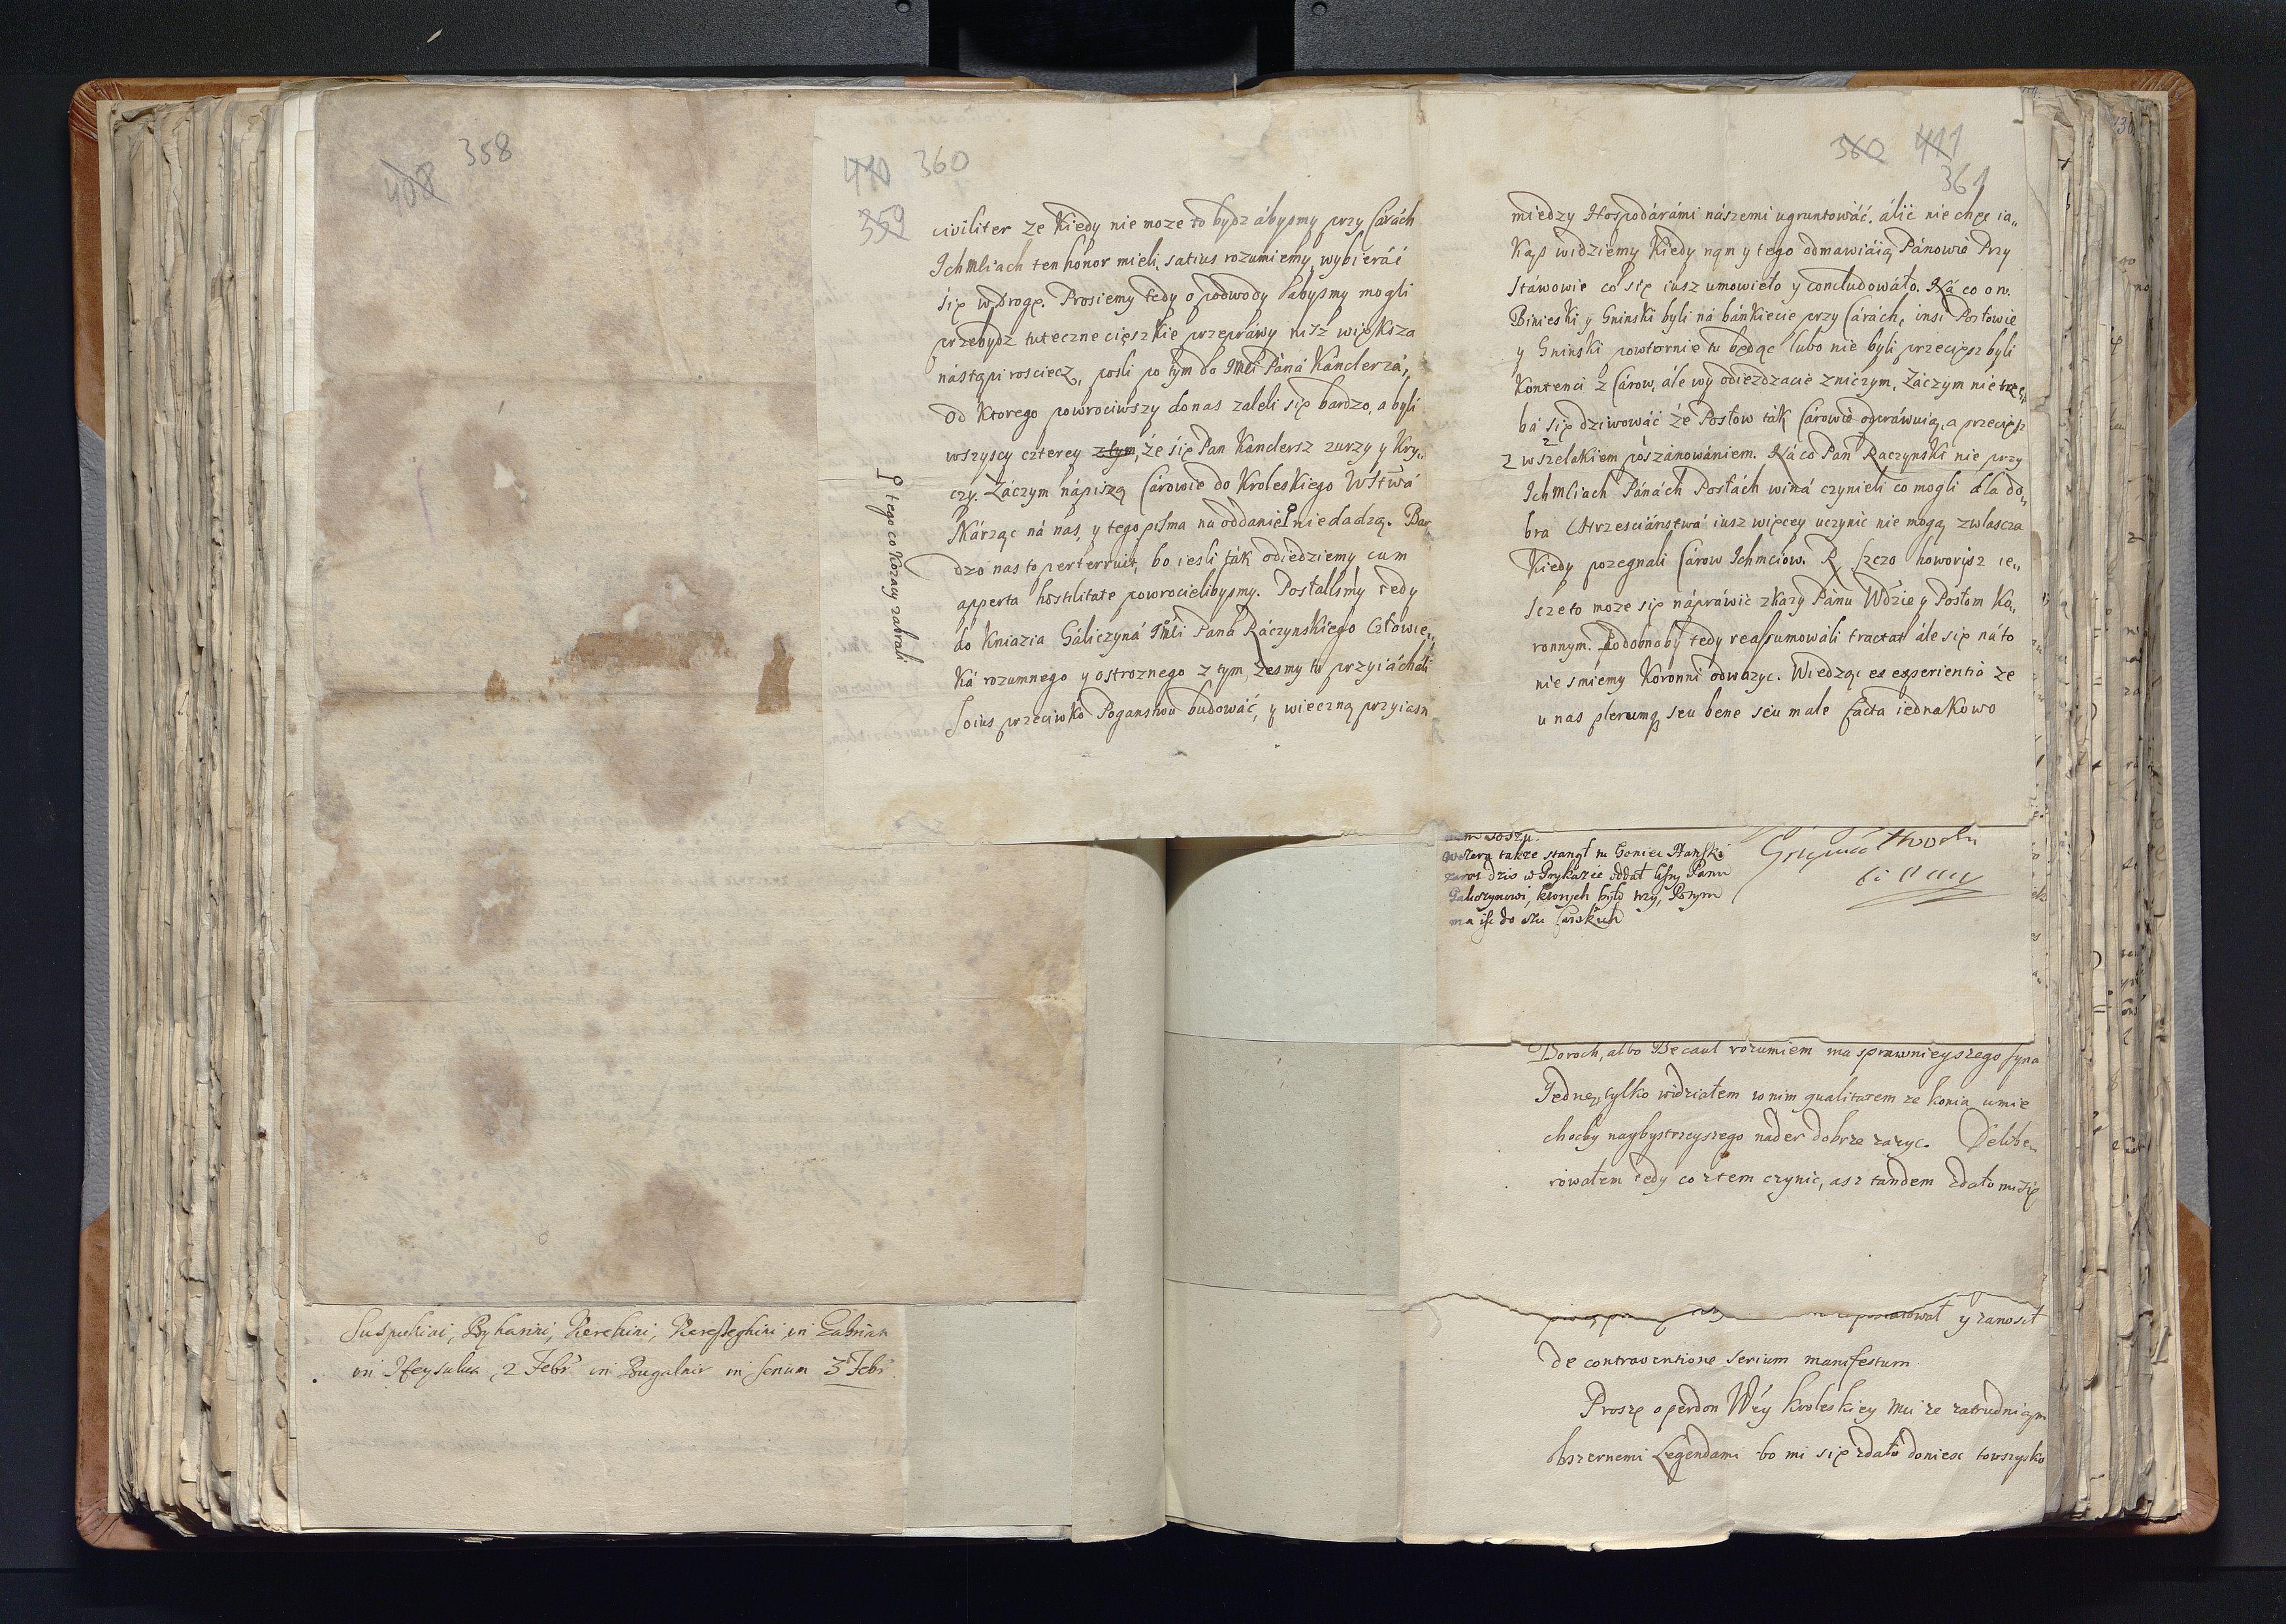 408 358
410 360
359
civiliter ze kiedy nie moze to bydz ábysmy przy Carách
Ichmliach ten honor mieli, satius rozumiemy wybieráć
się w drogę. Prosiemy tedy o podwody ábysmy mogli
przebydz tuteczne cięszkie przepráwy nisz większa
nástąpi rosciecz, posli po tym do Imli Páná Kanclerzá,
od ktorego powrociwszy do nas zaleli się bardzo, a byli
wszyscy czterey z tym, że się Pan Kanclersz zurzy y kry„
czy. Záczym nápiszą Cárowie do Kroleskiego
skárząc ná nas, y tego pisma na oddanie nie dadzą. Bar„
dzo nas to perterruit, bo iesli ták odiedziemy cum
apperta hostilitate powrocielibysmy. Postalismy tedy
do Kniazia Gáliczyná Imli Paná Ráczynskiego Człowie„
ká rozumnego y ostroznego z tym, zesmy tu przyiácháli
soius przeciwko Poganstwu budowáć, y wieczną przyiasn
tego co Kozacy zabrali
360 411
361
miedzy Hospodárámi nászemi ugruntowáć. álić niechęc ia„
kąs widziemy kiedy nąm y tego odmawiáią Pánowie Przy
stáwowie co się iusz umowieło y concludowáło. Ná co on.
Binieski y Gninski byli ná bánkiecie przy Cárách, insi Posłowie
y Gninski powtornie tu będąc lubo nie byli przeciesz byli
kontenci z Carow, ále wy odiezdzacie z niczym, Záczym nie trze„
bá się dziwowáć że Posłow ták Cárowie odpráwuią, a przeciesz
z wszelakiem poszánowániem. Ná co Pan Raczynski nie przy
Ichmliach Pánách Posłách winá czynieli co mogli dla do„
bra Chrzesciánstwá iusz więcey uczynic nie mogą zwlascza
kiedy pozegnali Cárow Ichmciow. R. szczo howorysz ie„
szcze to moze się nápráwic zkázy Pánu Wdzie y Posłom Ko„
ronnym. Podobnoby tedy reassumowáli tractat ále się ná to
nie smiemy Koronni odwazyc. Wiedząc ex experientia ze
u nas plerumq seu bene seu male facta iednakowo
Wczera takze stanął tu Goniec Hański
zaros dzis w Prykazie oddał listy Panu
Galiczynowi, ktorych było trzy, Potym
ma iść do rku Carskich
Doroch, albo Becaul rozumiem ma sprawnieyszego syna
Jednę tylko widziałem w nim qualitatem ze konia umie
chocby naybystrzeyszego nader dobrze zazyc. Delibe„
rowałem tedy co z tem czynic, asz tandem zdało mi się
postarował y zanosił
de contraventione serium manifestum
Proszę o perdon Wky Kroleskiey Mci ze zatrudniam
obszernemi Legendami bo mi się zdało doniesc to wszysko
in Zabrian
2 Febr in in senum 3 Febr